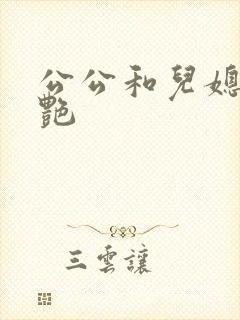 公公和兒媳
艷
三雲讓